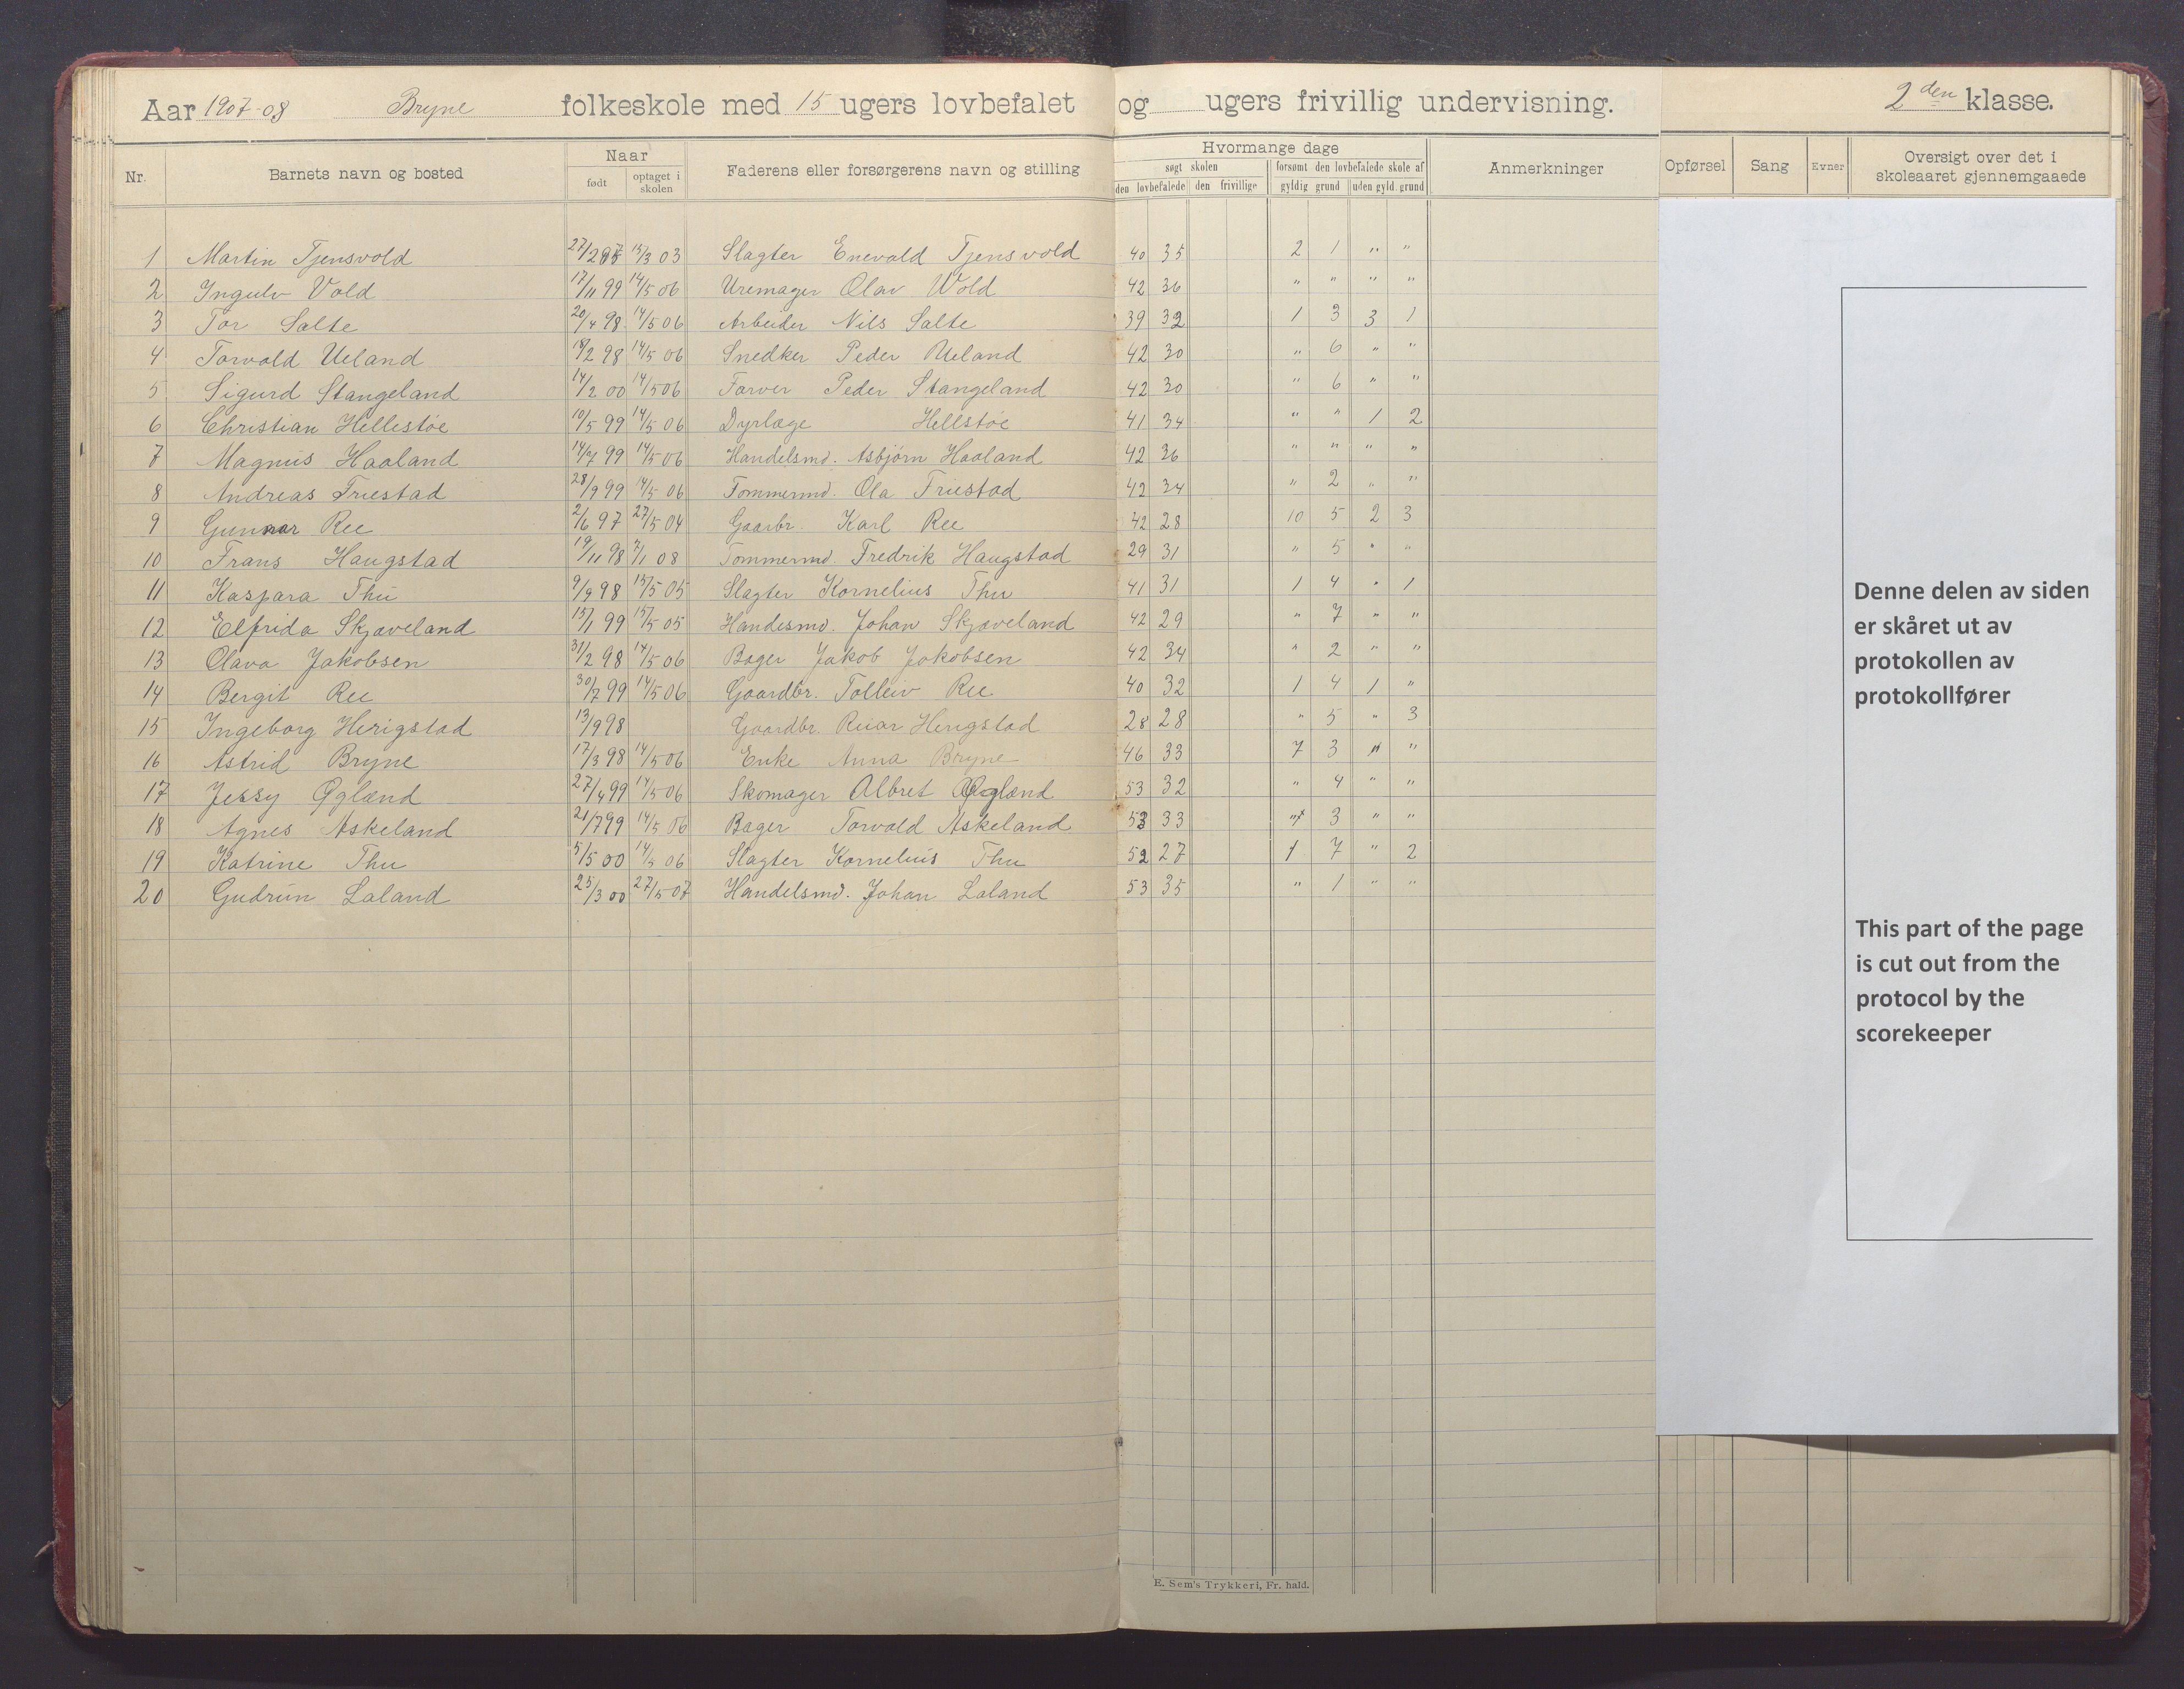 Aar 1907-08 Bryne folkeskole med 15 ugers lovbefalet og ugers frivillig undervisning. 2den klasse.
Nr. Barnets navn og bosted Naar født optaget i skolen Faderens eller forsørgerens navn og stilling Hvormange dage søgt skolen den lovbefalede den frivillige forsømt den lovbefalede skole af gyldig grund uden gyld. grund Anmerkninger Opførsel Sang Evner Oversigt over det i skoleaaret gjennemgaaede
1 Martin Tjensvold 27/2 97 15/3 03 Slagter Enevald Tjensvold 40 35 2 1 " "
2 Ingulv Vold 17/11 99 14/5 06 Uremager Olav Wold 42 36 " " " "
3 Tor Salte 20/4 98 14/5 06 Arbeider Nils Salte 39 32 1 3 3 1
4 Torvald Ueland 18/2 98 14/5 06 Snedker Peder Ueland 42 30 " 6 " "
5 Sigurd Stangeland 14/2 00 14/5 06 Farver Peder Stangeland 42 30 " 6 " "
6 Christian Hellestöe 10/5 99 14/5 06 Dyrlæge Hellstöe 41 34 " " 1 2
7 Magnus Haaland 14/7 99 14/5 06 Handelsmd. Asbjörn Haaland 42 36 " " " "
8 Andreas Friestad 28/9 99 14/5 06 Tømmermd. Ola Friestad 42 34 " 2 " "
9 Gunnar Ree 2/6 97 27/5 04 Gaarbr. Karl Ree 42 28 10 5 2 3
10 Frans Haugstad 19/11 98 7/1 08 Tømmermd. Fredrik Haugstad 29 31 " 5 " "
11 Kaspara Thu 9/9 98 15/5 05 Slagter Kornelius Thu 41 31 1 4 " 1
12 Elfrida Skjæveland 15/1 99 15/5 05 Handesmd. Johan Skjæveland 42 29 " 7 " "
13 Olava Jakobsen 31/2 98 14/5 06 Bager Jakob Jakobsen 42 34 " 2 " "
14 Bergit Ree 30/7 99 14/5 06 Gaardbr. Tolleiv Ree 40 32 1 4 1 "
15 Ingeborg Herigstad 13/9 98 Gaardbr. 28 28 " 5 " 3
16 Astrid Bryne 17/3 98 14/5 06 Enke Anna Bryne 46 33 7 3 " "
17 Jessy Øglænd 27/4 99 14/5 06 Skomager Albret Øglænd 53 32 " 4 " "
18 Agnes Askeland 21/7 99 14/5 06 Bager Torvald Askeland 53 33 " 3 " "
19 Katrine Thu 5/5 00 14/5 06 Slagter Kornelius Thu 52 27 1 7 " 2
20 Gudrun Laland 25/3 00 27/5 07 Handelsmd. Johan Laland 53 35 " 1 " "
Denne delen av siden
er skåret ut av
protokollen av
protokollfører
This part of the page
is cut out from the
protocol by the
scorekeeper
E. Sem's Trykkeri, Fr. hald.